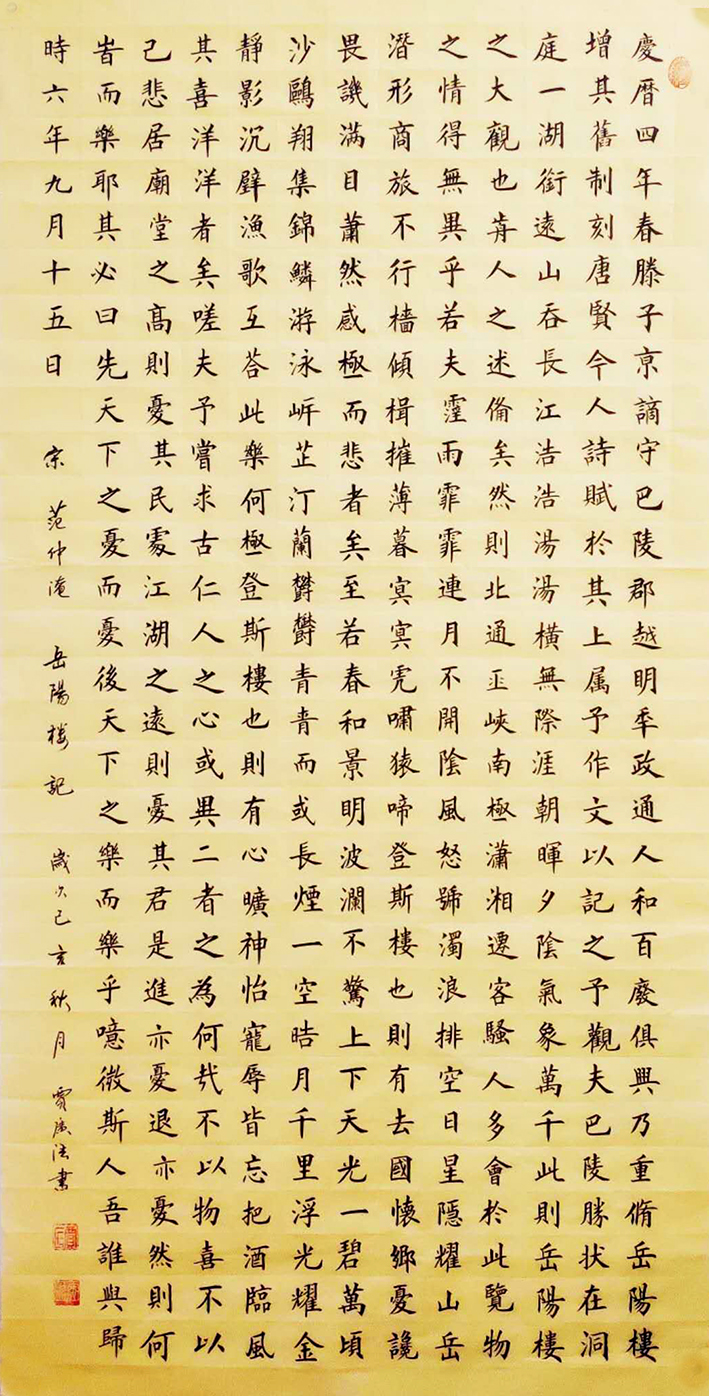 慶曆四年春滕子亰謫守巴陵郡越明秊政通人和百廢俱興乃重脩岳陽樓
增其舊制刻唐賢今人詩賦於其上属予作文以記之予觀夫巴陵勝状在洞
庭一湖銜遠山吞長江浩浩湯湯橫無際涯朝暉夕陰氣象萬千此則岳陽樓
之大觀也前人之述備矣然則北通巫峽南極瀟湘遷客騷人多會於此覽物
之情得無異乎若夫霪雨霏霏連月不開陰風怒號濁浪排空日星隱耀山岳
潛形商旅不行檣傾楫摧薄暮冥冥虎嘯猿啼登斯樓也則有去國懷鄉憂讒
畏譏滿目蕭然感極而悲者矣至若春和景明波瀾不驚上下天光一碧萬頃
沙鷗翔集錦鱗游泳岸芷汀蘭鬱鬱青青而或長煙一空皓月千里浮光耀金
靜影沉璧漁歌互荅此樂何極登斯樓也則有心曠神怡寵辱皆忘把酒臨風
其喜洋洋者矣嗟夫予嘗求古仁人之心或異二者之為何哉不以物喜不以
己悲居廟堂之髙則憂其民處江湖之遠則憂其君是進亦憂退亦憂然則何
旹而樂耶其必曰先天下之憂而憂後天下之樂而樂乎噫微斯人吾誰與歸
時六年九月十五日 宋 范仲淹 岳陽樓記 歲次己亥秋月 賈廣法書